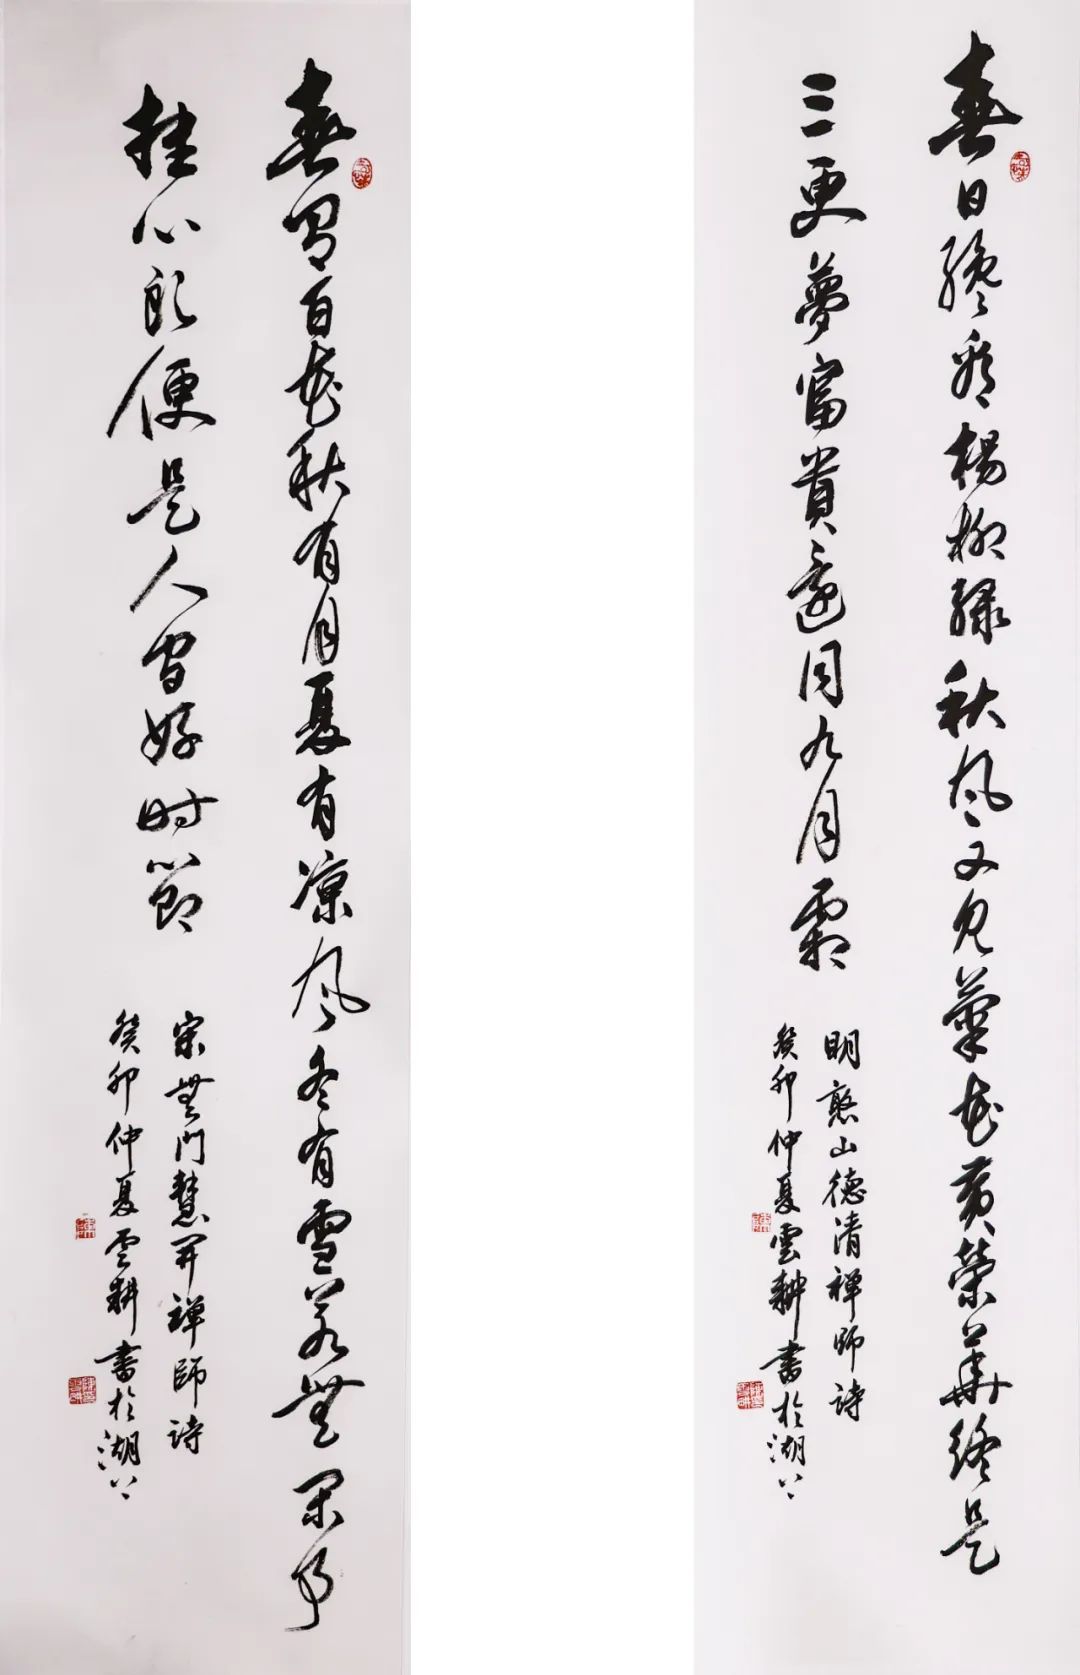 春日纔看楊柳緑秋风又見菊花黄榮華終是
三更夢富貴還同九月霜
明憨山德清禅師詩
癸卯仲夏雲耕書於湖上
春有百花秋有月夏有凉风冬有雪若無閑事
挂心頭便是人間好时節
宋無門慧開禅師詩
癸卯仲夏雲耕書於湖上